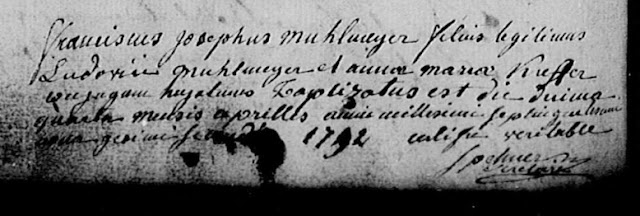 Franciscus Josephus Muhlmeyer filius legitimus
Ludovici Muhlmeyer et annae mariae Kieffer
conjugum hujatium baptizatus est die decima
quarta mensis aprilis anni millesimi septingentesimi
nona gesimi secundi 1792 veritable